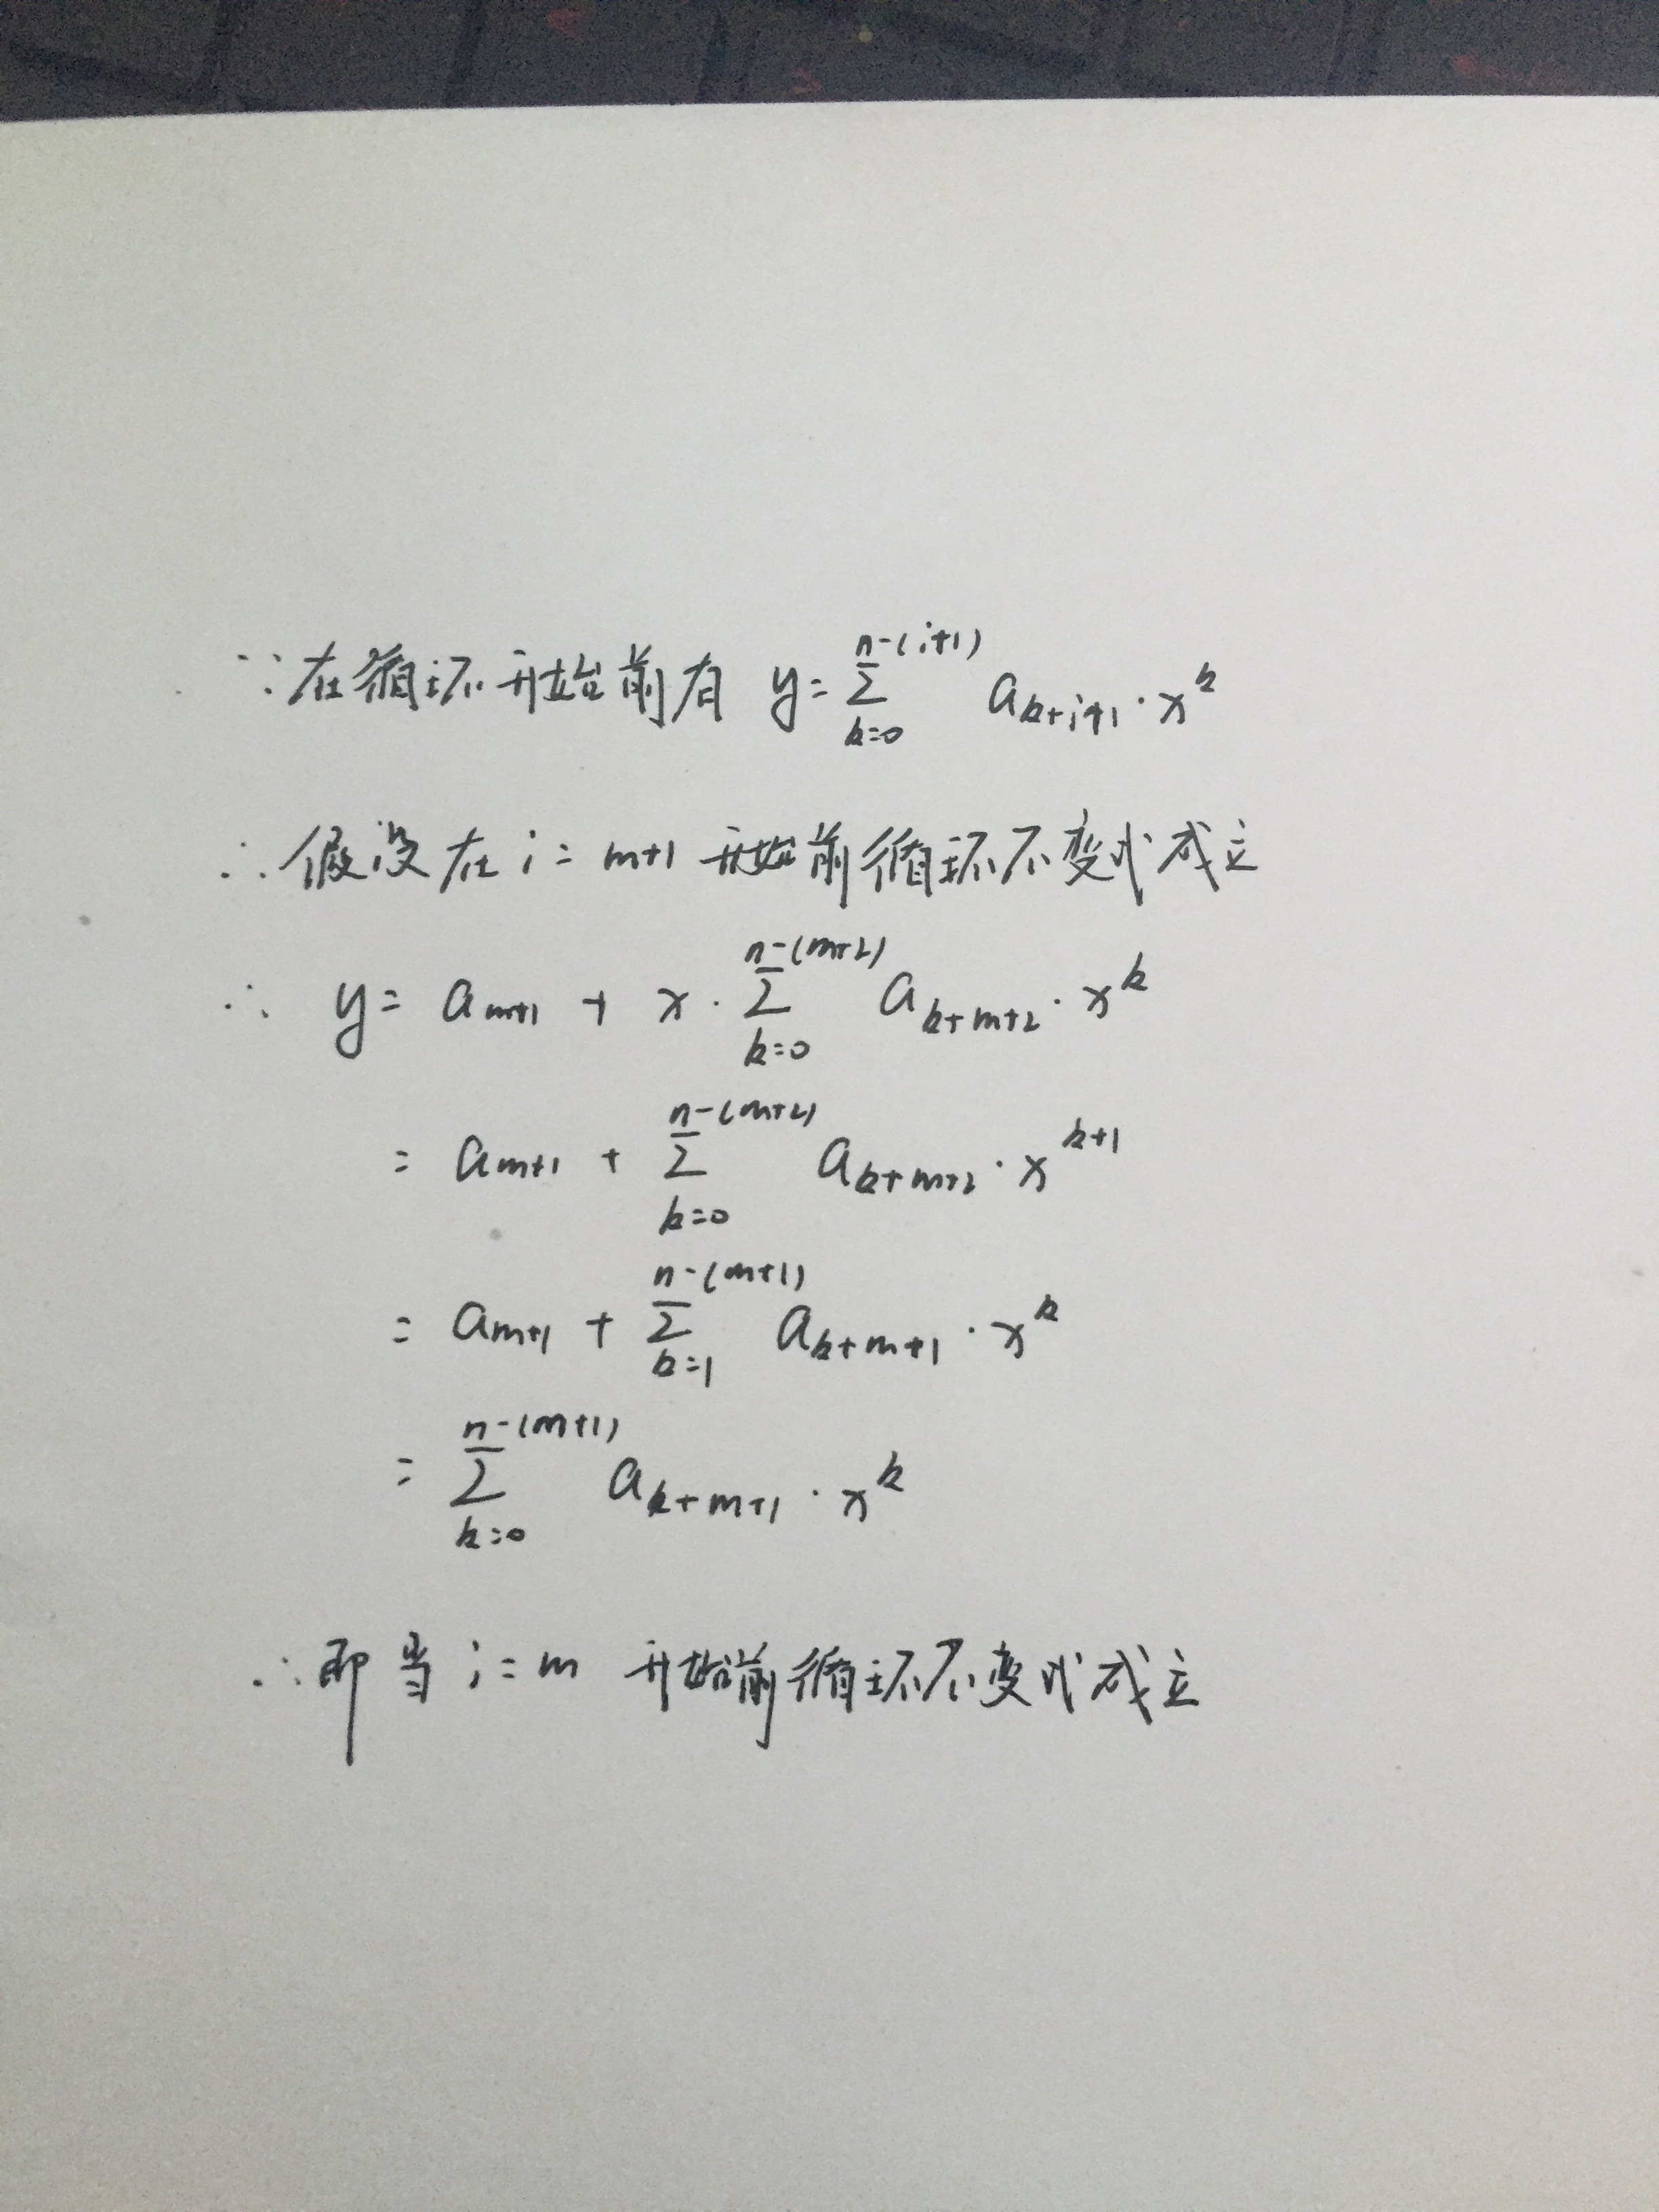 ∵在循环开始前有 y=∑_{k=0}^{n-(i+1)} a_{k+i+1}·x^k
∴假设在 i=m+1 开始前循环不变式成立
∴ y= a_{m+1} + x·∑_{k=0}^{n-(m+2)} a_{k+m+2}·x^k
= a_{m+1} + ∑_{k=0}^{n-(m+2)} a_{k+m+2}·x^{k+1}
= a_{m+1} + ∑_{k=1}^{n-(m+1)} a_{k+m+1}·x^k
= ∑_{k=0}^{n-(m+1)} a_{k+m+1}·x^k
∴即当 i=m 开始前循环不变式成立